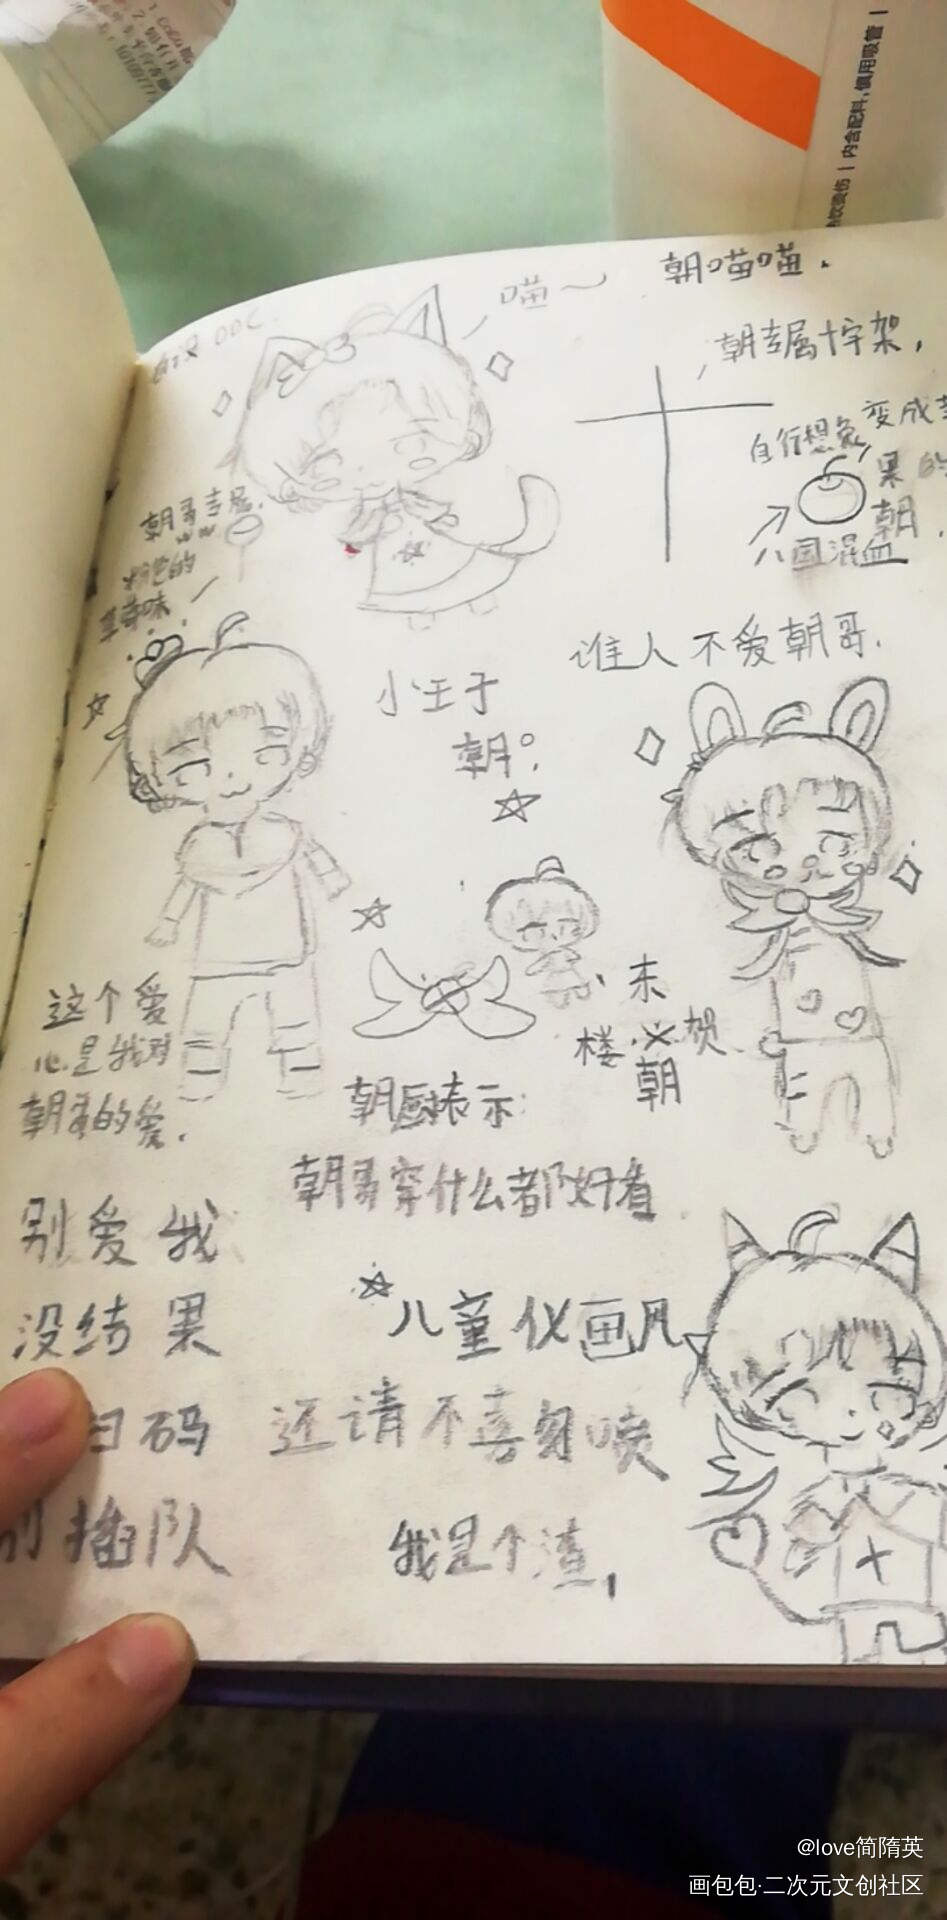 喵~
朝喵喵.
朝专属十字架,
自行想象变成苹
果的
朝.
八国混血
朝哥专属.
粉色的
草莓味
谁人不爱朝哥.
小王子
朝°.
这个爱
心是我对
朝哥的爱.
末
楼 贺
朝
朝厨表示:
朝哥穿什么都好看
别爱我
没结果
儿童化画风
扫码
还请不喜勿喷
别插队
我是个渣,
内含配料,慎用吸管 |
@love简隋英
画包包·二次元文创社区